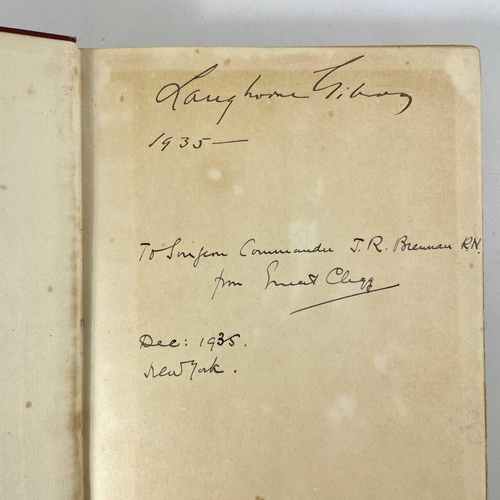 Langhorne Gibson
1935 —
To Surgeon Commander J. R. Brennan R.N.
from Ernest Clegg
Dec: 1935.
New York.